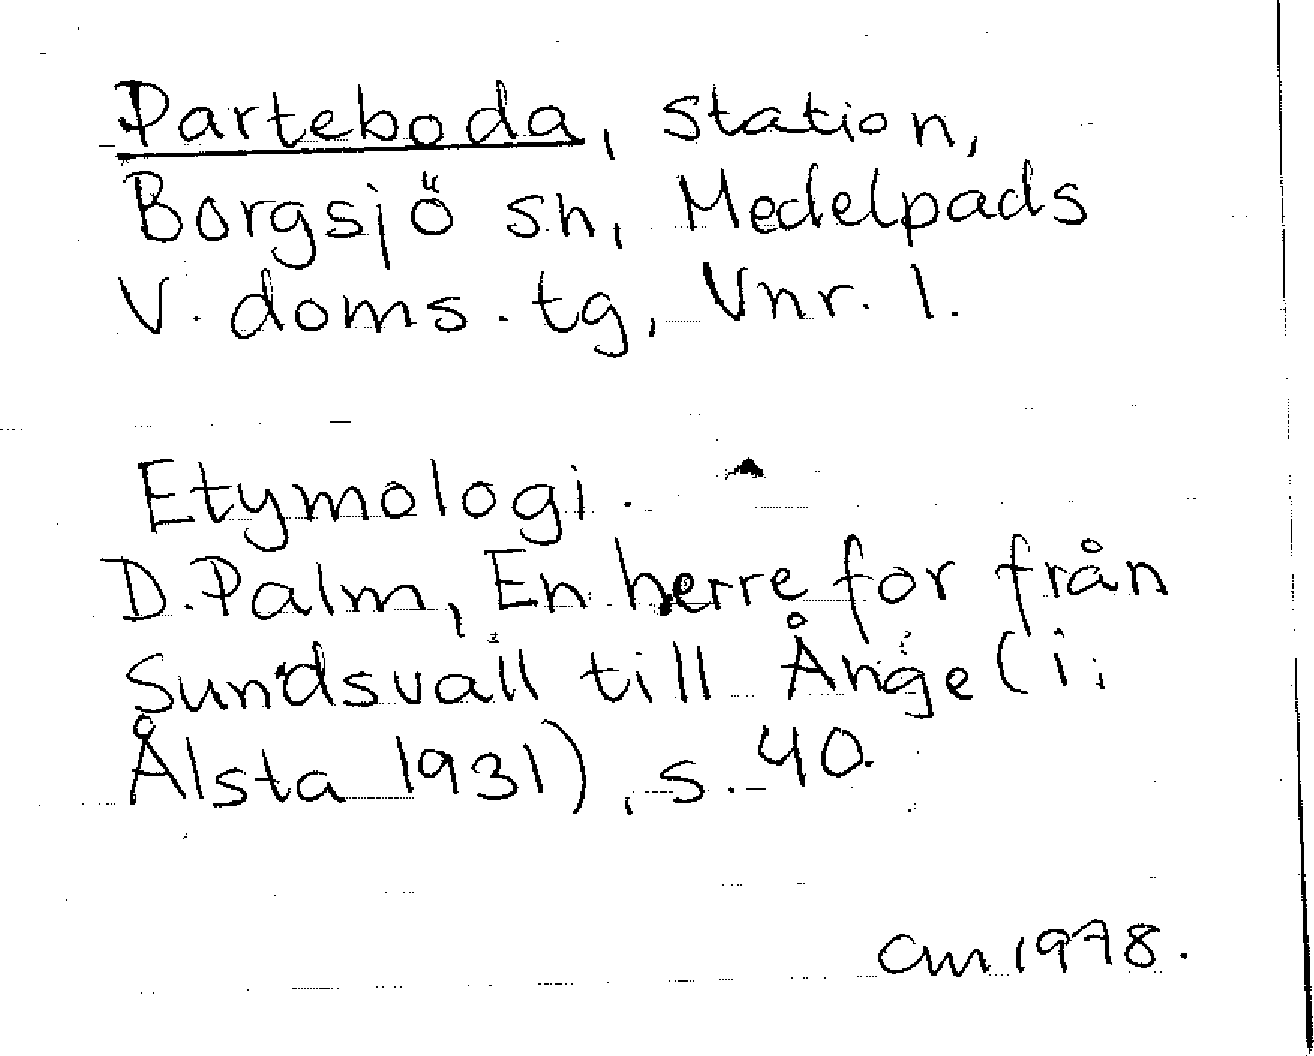 Parteboda, station,
Borgsjö sn, Medelpads
V. doms. tg, Vnr. 1.
Etymologi.
D. Palm, En herre for från
Sundsvall till Ånge (i:
Ålsta 1931), s. 40.
Cm 1978.